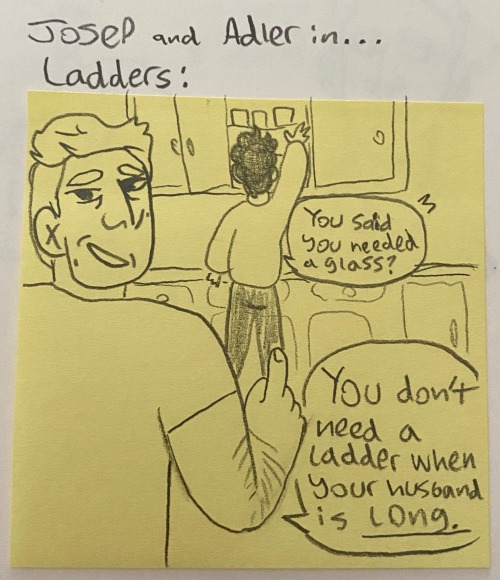 Josep and Adler in...
Ladders:
You said
you needed
a glass?
You don't
need a
ladder when
your husband
is long.